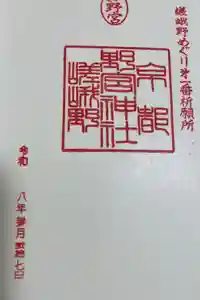 野宮
嵯峨野めぐり㐧一番祈願所
京都
野宮神社
嵯峨野
令和
八年参月貳拾七日